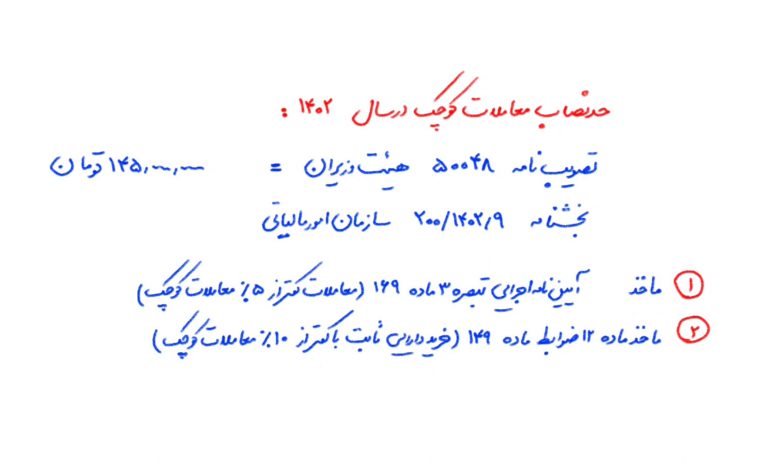 حدنصاب معاملات کوچک در سال ۱۴۰۲ :
تصویب نامه ۵۰۰۴۸ هیئت وزیران = ۱۴۵,۰۰۰,۰۰۰ تومان
بخشنامه ۲۰۰/۱۴۰۲/۹ سازمان امور مالیاتی
۱ ماخذ آیین نامه اجرایی تبصره ۳ ماده ۱۶۹ (معاملات کمتر از ۵٪ معاملات کوچک)
۲ ماخذ ماده ۱۲ ضوابط ماده ۱۴۹ (خرید دارایی ثابت با کمتر از ۱۰٪ معاملات کوچک)